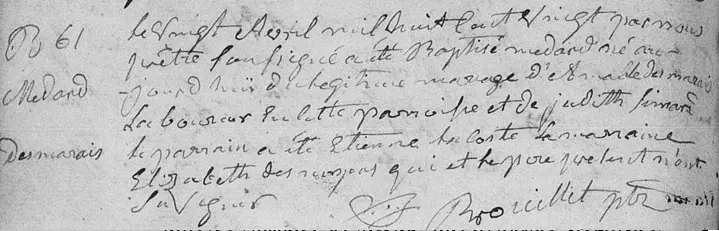 B 61
Medard
desmarais
le vingt Avril mil huit Cent vingt par nous
prêtre soussigné a été Baptisé medard né au-
-jourd'hui du legitime mariage d'Amable desmarais
Laboureur En cette paroisse et de judith simard
le parrain a été Etienne la coste la maraine
Elizabeth des qui et le pere présent n'ont
su signer
Brouillet ptr